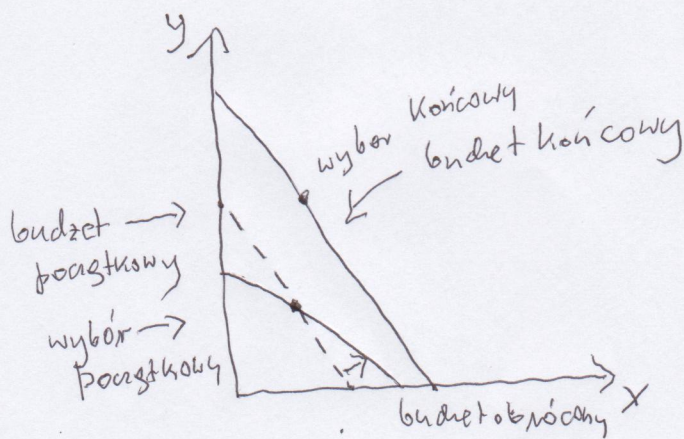 y
wybor końcowy
budżet końcowy
budżet
początkowy
wybór
początkowy
budżet obrócony
x